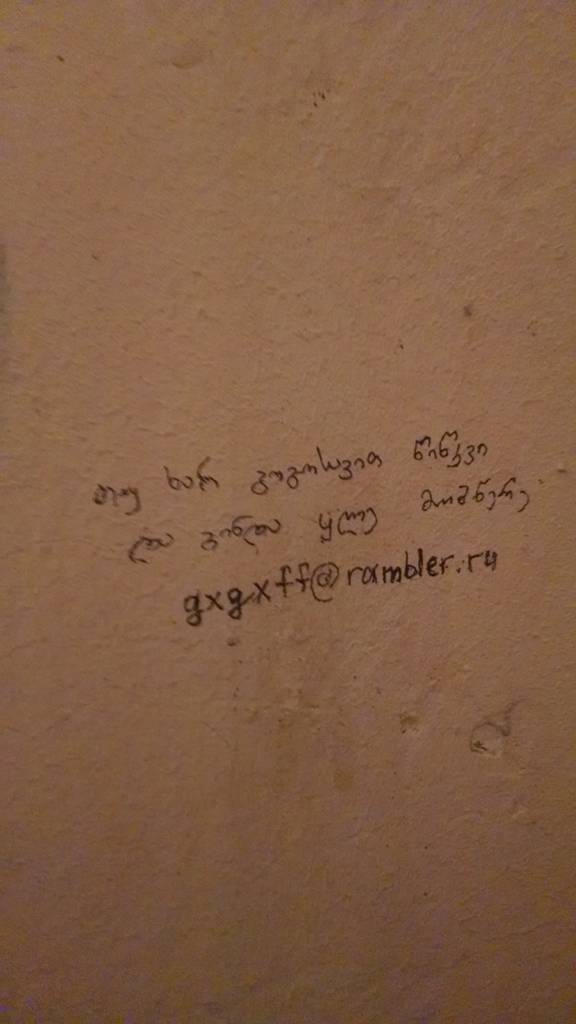 თუ ხარ გოგოსავით ნინქვი
და გინდა ყლე მომწერე
gxgxff@rambler.ru